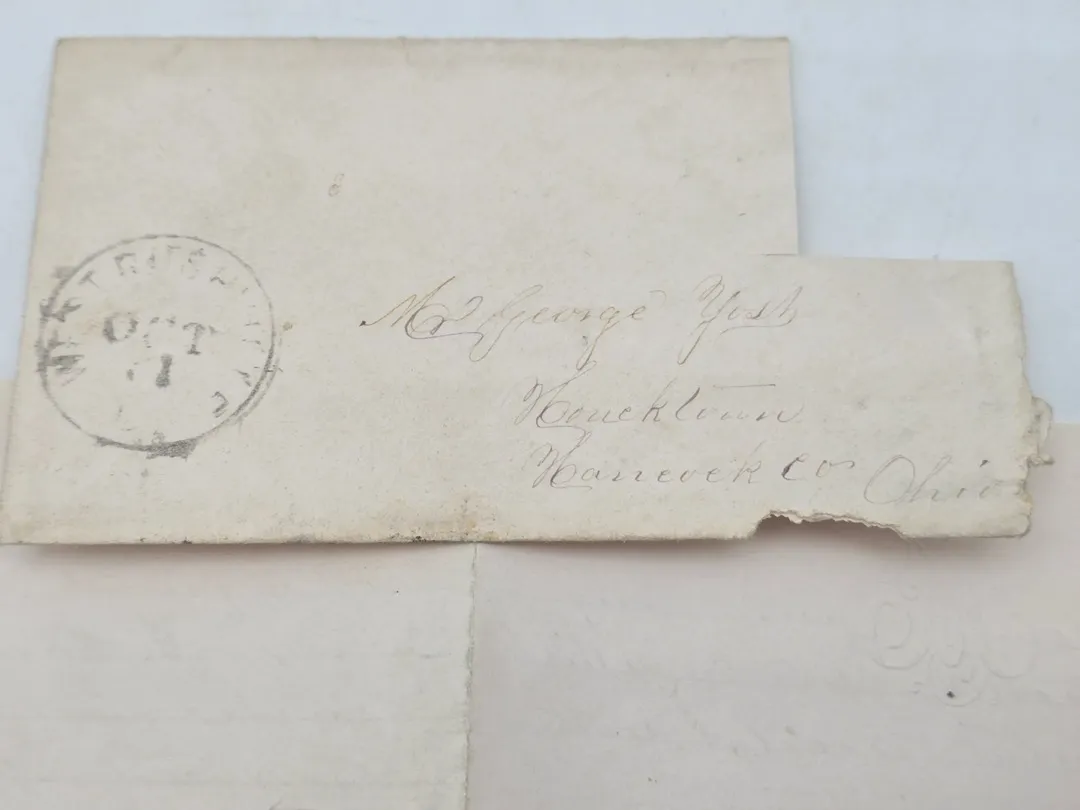 WEST RUSHVILLE
OCT
1
O
Mr George Yost
Houcktown
Hancock co Ohio